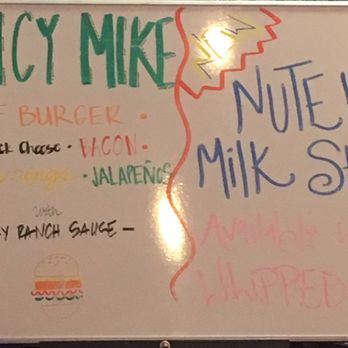 ICY MIKE
F BURGER •
CK CHEESE • BACON •
• JALAPEÑOS
with
Y RANCH SAUCE —
NEW
NUTE
MILK S
AVAILABLE
WHIPPED